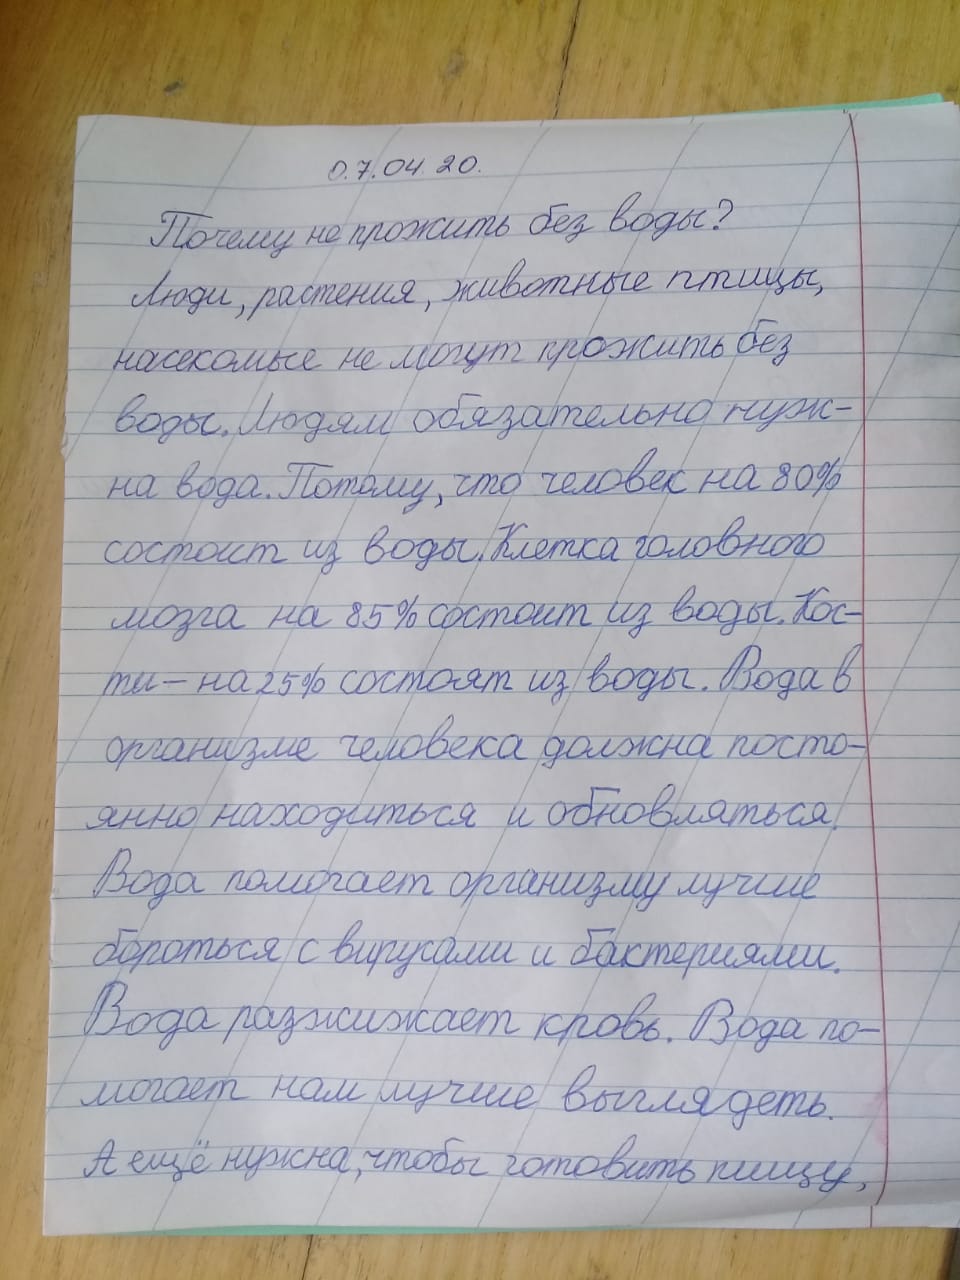 0.7.04.20.
Почему не прожить без воды?
Люди, растения, животные птицы,
насекомые не могут прожить без
воды. Людям обязательно нуж-
на вода. Потому, что человек на 80%
состоит из воды. Клетка головного
мозга на 85% состоит из воды. Кос-
ти - на 25% состоят из воды. Вода в
организме человека должна посто-
янно находиться и обновляться.
Вода помогает организму лучше
бороться с вирусами и бактериями.
Вода разжижает кровь. Вода по-
могает нам лучше выглядеть.
А ещё нужна, чтобы готовить пищу,